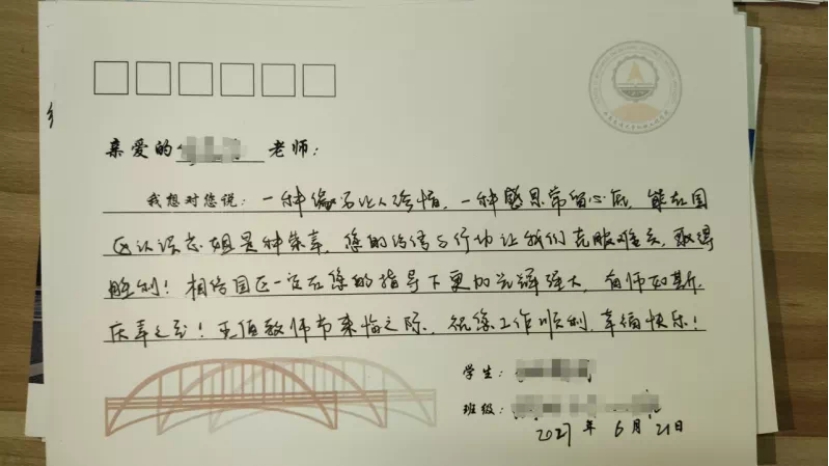 亲爱的 老师：
我想对您说：一种缘分让人珍惜，一种感恩常留心底，能在园
区认识 姐是种荣幸，您的 与行动让我们克服难关，取得
胜利！相信园区一定在您的指导下更加光辉强大，有师如斯，
庆幸之至！正值教师节来临之际，祝您工作顺利，幸福快乐！
学生：
班级：
2021年6月21日